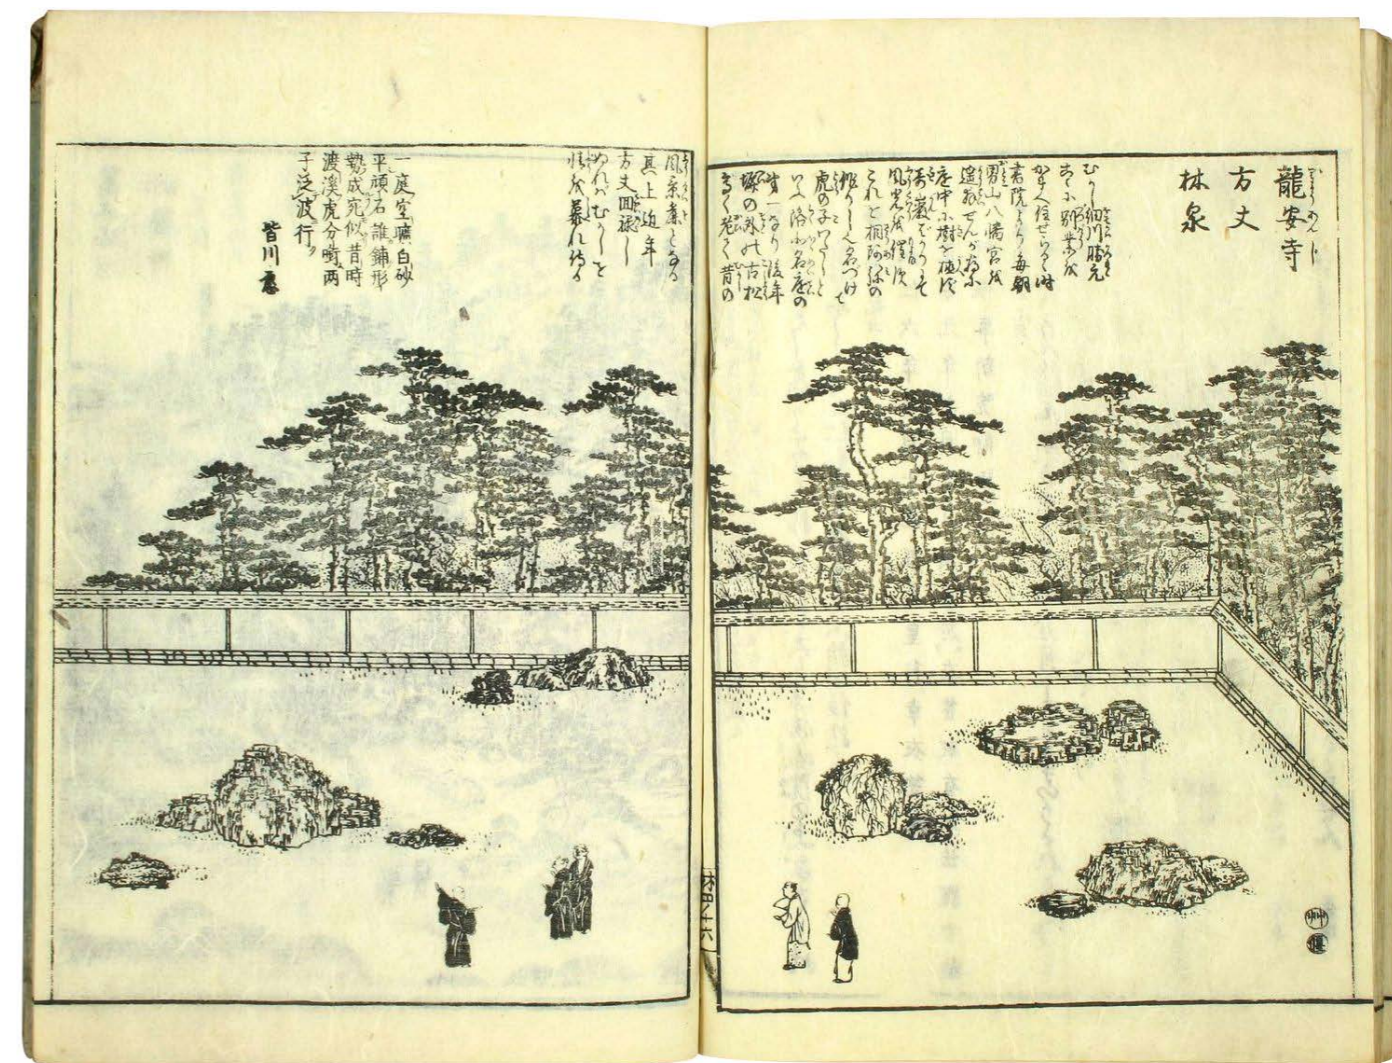 龍安寺
りようあんじ
方丈
林泉
むかし細川勝元
こゝに別業を
かまへ住せらるゝ時
書院より毎朝
男山八幡宮を
遥拝せんが為に
庭中に樹を植ず
奇巌ばかりにて
風光を催す
これを相阿弥の
名づけて
虎の子わたしと
いふ洛北名庭の
第一なり後年
塀の外の古松
高く老て昔の
風景麁となる
其上近年
方丈回禄し
ぬればむかしを
慕れ侍る
一庭空曠白砂
平頑石誰鋪形
勢成宛似昔時
渡渓虎分両
子泛波行
皆川愿